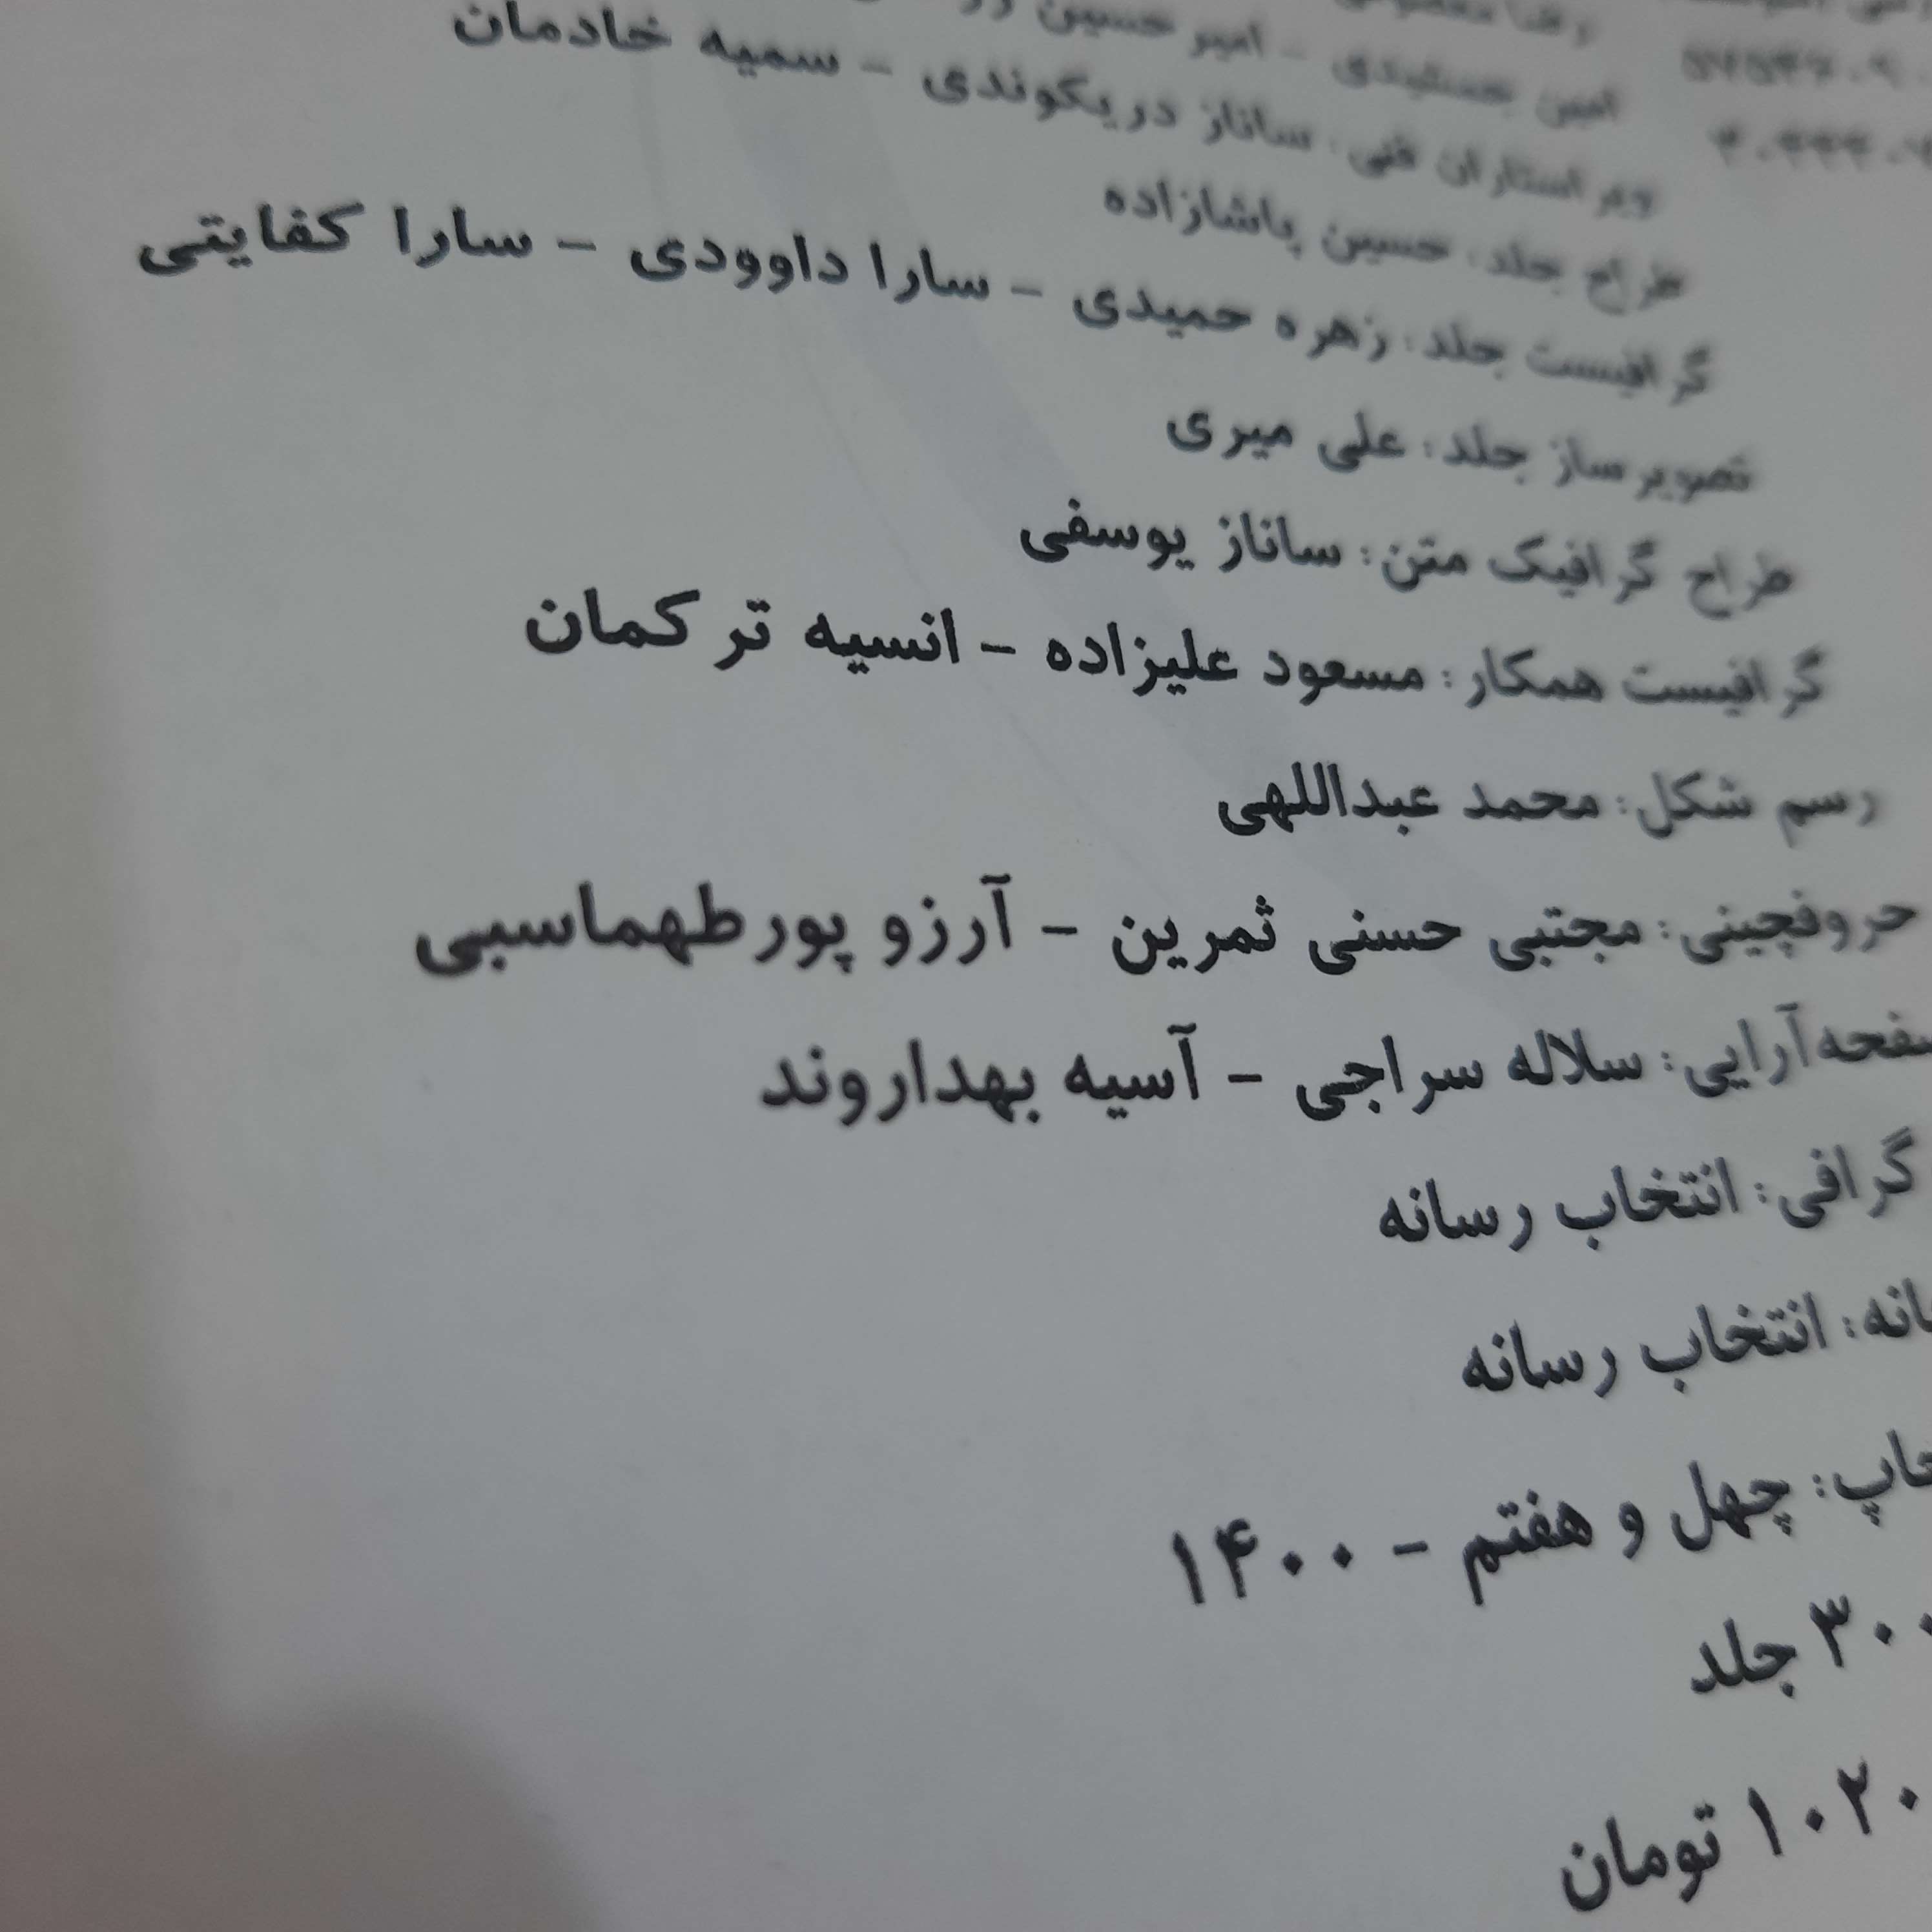 امیر حسین
ویراستاران فنی: ساناز دریکوندی - سمیه خادمان
طراح جلد: حسین پاشازاده
گرافیست جلد: زهره حمیدی - سارا داوودی - سارا کفایتی
تصویرساز جلد: علی میری
طراح گرافیک متن: ساناز یوسفی
گرافیست همکار: مسعود علیزاده - انسیه ترکمان
رسم شکل: محمد عبداللهی
حروفچینی: مجتبی حسنی ثمرین - آرزو پورطهماسبی
صفحه‌آرایی: سلاله سراجی - آسیه بهداروند
گرافی: انتخاب رسانه
انتخاب رسانه
چاپ: چهل و هفتم - ۱۴۰۰
جلد
تومان